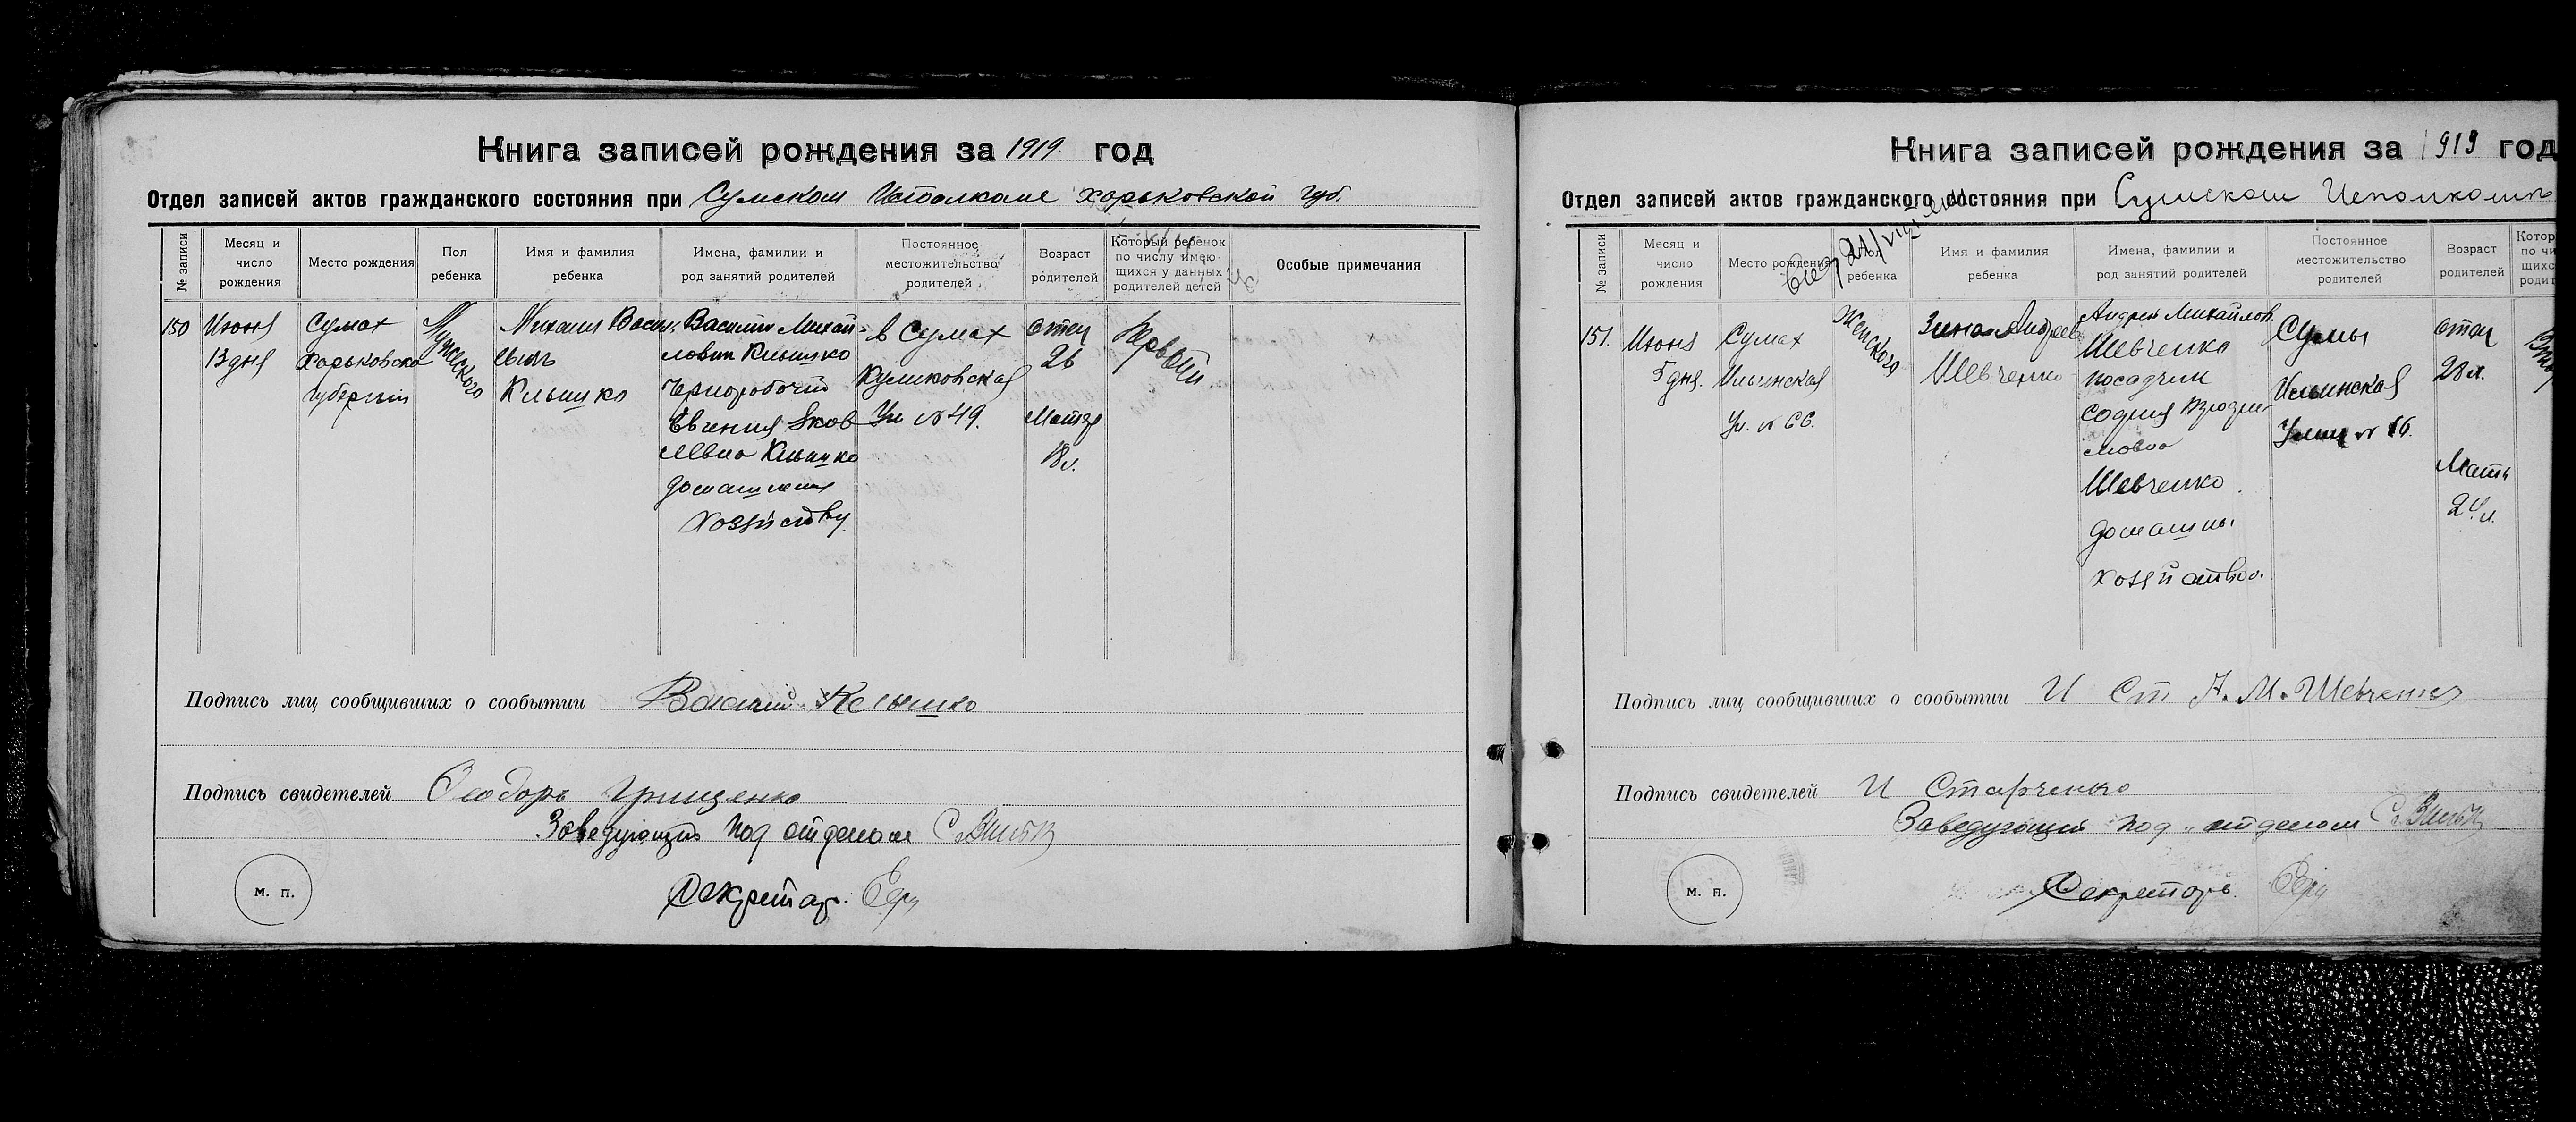 Книга записей рождения за 1919 год
Отдел записей актов гражданского состояния при Сумском Исполкоме Харьковской губ.
№ записи
Месяц и
число
рождения
Место рождения
Пол
ребенка
Имя и фамилия
ребенка
Имена, фамилии и
род занятий родителей
Постоянное
местожительство
родителей
Возраст
родителей
Который ребенок
по числу имею-
щихся у данных
родителей детей
Особые примечания
150
Июня
13 дня
Сумах
Харьковско
губернии
Мужского
Михаил Васил.
сын
Клышко
Василий Михай-
лович Клышко
Черноробочий
Евгения Яков
левна Клышко
домашнем
хозяйству.
в Сумах
Куликовская
Ул № 49.
отец
26
Мать
18 л.
Первый
Подпись лиц сообщивших о сообытии Василий Клышко
Подпись свидетелей Феодоръ Грищенко
Заведующий под отделом
Секретар.
м. п.
Книга записей рождения за 1919 год
Отдел записей актов гражданского состояния при Сумском Исполкомъ
№ записи
Месяц и
число
рождения
Место рождения
Пол
ребенка
Имя и фамилия
ребенка
Имена, фамилии и
род занятий родителей
Постоянное
местожительство
родителей
Возраст
родителей
Котор
по чи
щихс
родит
151.
Июня
5 дня.
Сумах
Ильинская
Ул. № 66.
Женского
Зина Андреев
Шевченко
Андрей Михайлов
Шевченко
посадчик
София
мовна
Шевченко
домашны
хозяйство.
Сумы
Ильинская
Улиц №
отец
28 л.
Мать
24 л.
Подпись лиц сообщивших о сообытии И Ст А. М. Шевченко
Подпись свидетелей И Старченко
Заведующий под отделом
Секретарь.
м. п.